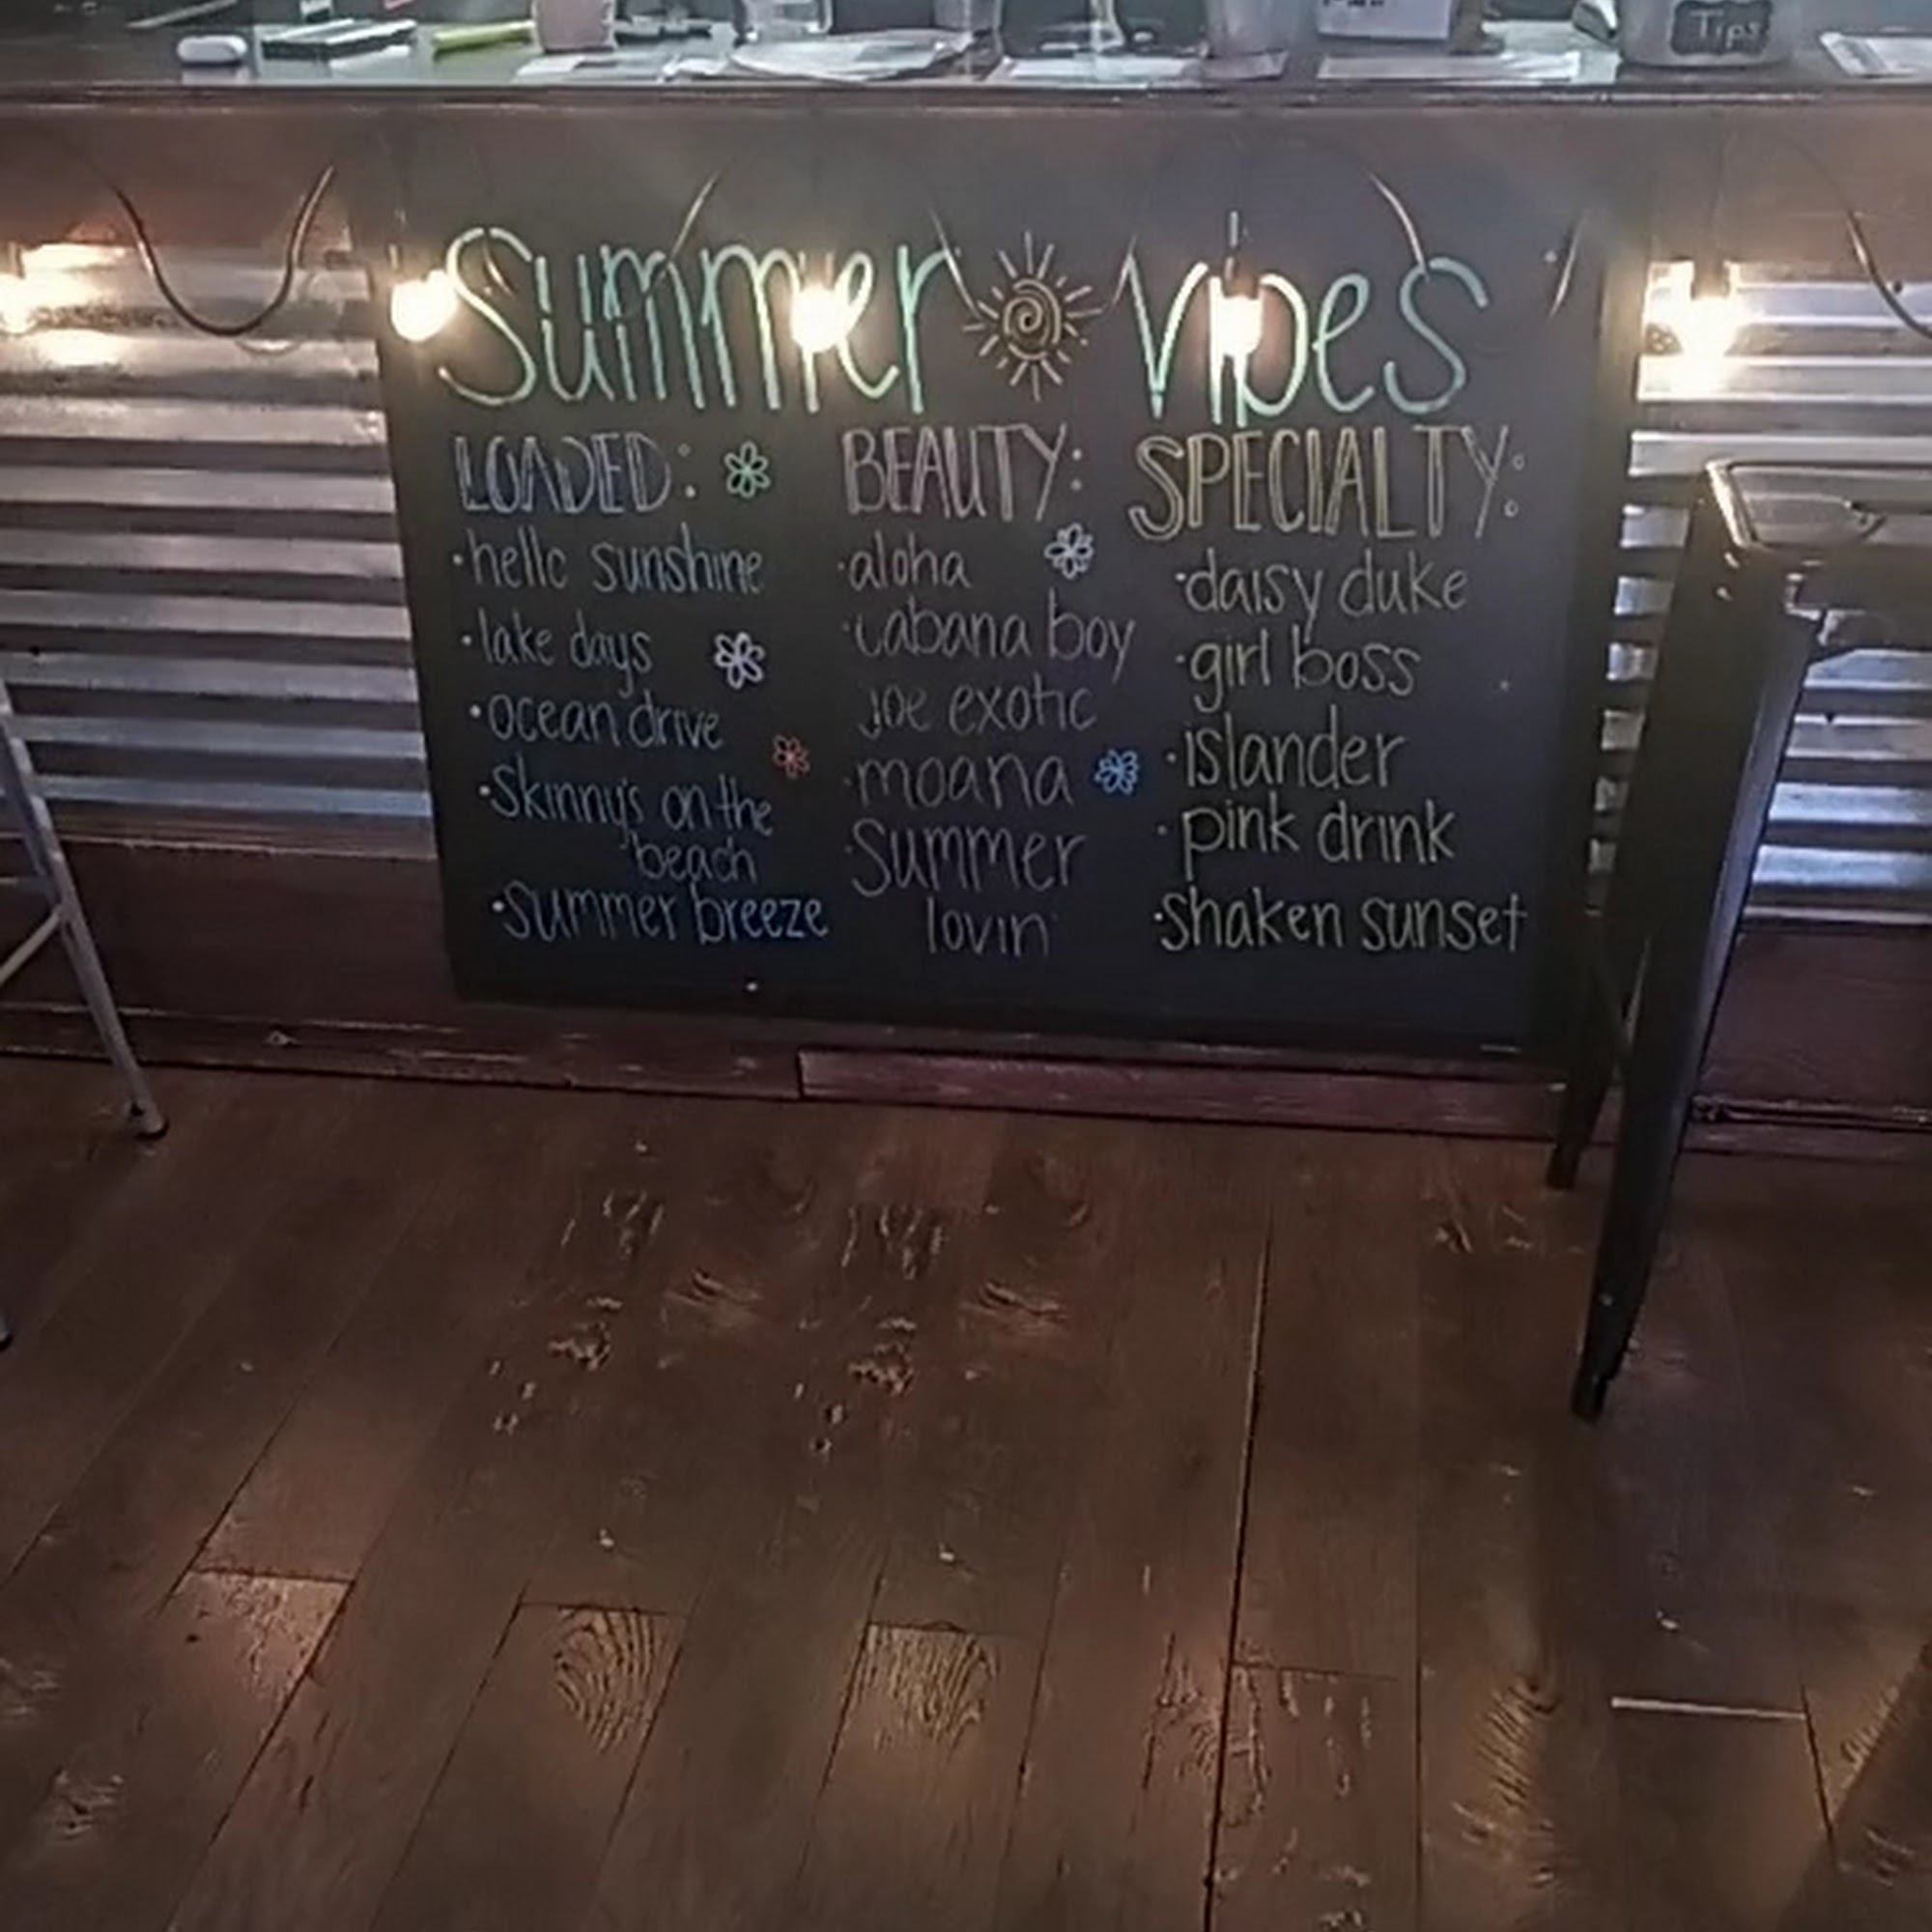 Tips
Summer vibes
LOADED:
·hello sunshine
·lake days
·ocean drive
·Skinny's on the
beach
·summer breeze
BEAUTY:
·aloha
·cabana boy
joe exotic
·moana
·Summer
lovin'
SPECIALTY:
·daisy duke
·girl boss
·islander
·pink drink
·shaken sunset